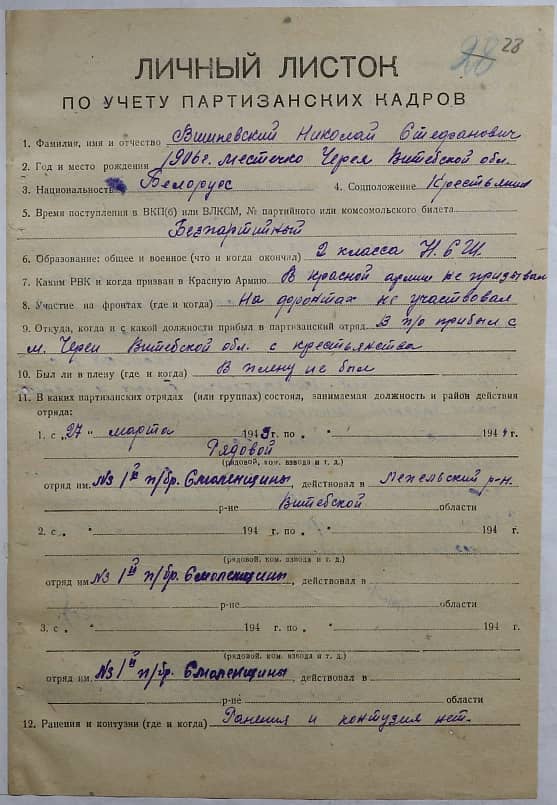 28 28
ЛИЧНЫЙ ЛИСТОК
ПО УЧЕТУ ПАРТИЗАНСКИХ КАДРОВ
1. Фамилия, имя и отчество Вшивевский Николай Стефанович
2. Год и место рождения 1906г. местечко Черея Витебской обл.
3. Национальность Белорус 4. Соцположение Крестьянин
5. Время поступления в ВКП(б) или ВЛКСМ, № партийного или комсомольского билета
Безпартийный
6. Образование: общее и военное (что и когда окончил) 2 класса Н.С.Ш.
7. Каким РВК и когда призван в Красную Армию В красной армии не призывал
8. Участие на фронтах (где и когда) На фронтах не участвовал
9. Откуда, когда и с какой должности прибыл в партизанский отряд В п/о прибыл с
м. Череи Витебской обл. с крестьянства
10. Был ли в плену (где и когда) В плену не был
11. В каких партизанских отрядах (или группах) состоял, занимаемая должность и район действия
отряда:
1. с „27" марта 1943г. по „ " 1944г.
Рядовой
(рядовой, ком. взвода и т. д.)
отряд им. №3 1й п/бр. Смоленщины, действовал в Лепельский р-н.
р-не Витебской области
2. с „ " 194 г. по „ " 194 г.
(рядовой, ком. взвода и т. д.)
отряд им. №3 1й п/бр. Смоленщины, действовал в
р-не области
3. с „ " 194 г. по „ " 194 г.
(рядовой, ком. взвода и т. д.)
отряд им. №3 1й п/бр. Смоленщины, действовал в
р-не области
12. Ранения и контузии (где и когда) Ранения и контузия нет.